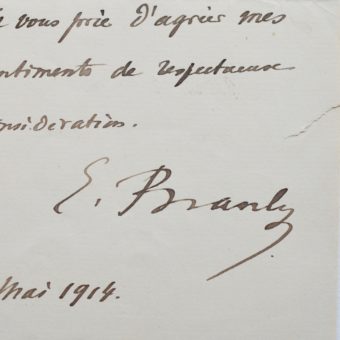 vous prie d'agréer mes
ntiments de respectueuse
nsidération.
E. Branly
Mai 1914.